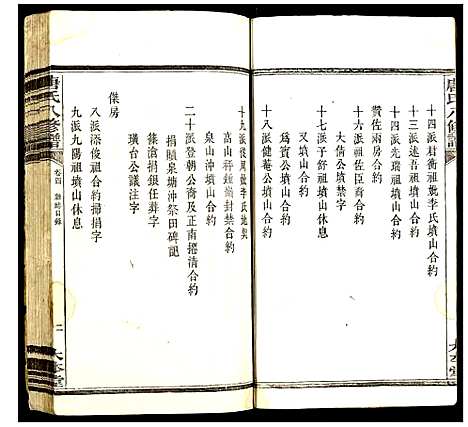 唐氏八修譜
十四派柱衡祖妣李氏墳山合約
十三派達吾祖墳山合約
十四派先瑞祖墳山合約
贊佐兩房合約
十六派祖佐臣齋合約
大倩公墳禁字
十七派于舒祖墳山休息
又墳山合約
為資公墳山合約
十八派健菴公墳山合約
十九派後周號李氏地契
高山祥鍾崙封禁合約
泉山沖墳山合約
二十派登朝公裔及正南擺清合約
捐賠泉塘沖祭田碑記
篠滄捐銀任葬字
璜台公議注字
傑房
八派添俊祖合約掃捐字
九派九陽祖墳山休息
唐氏八修譜
卷四
目錄
二
大本堂